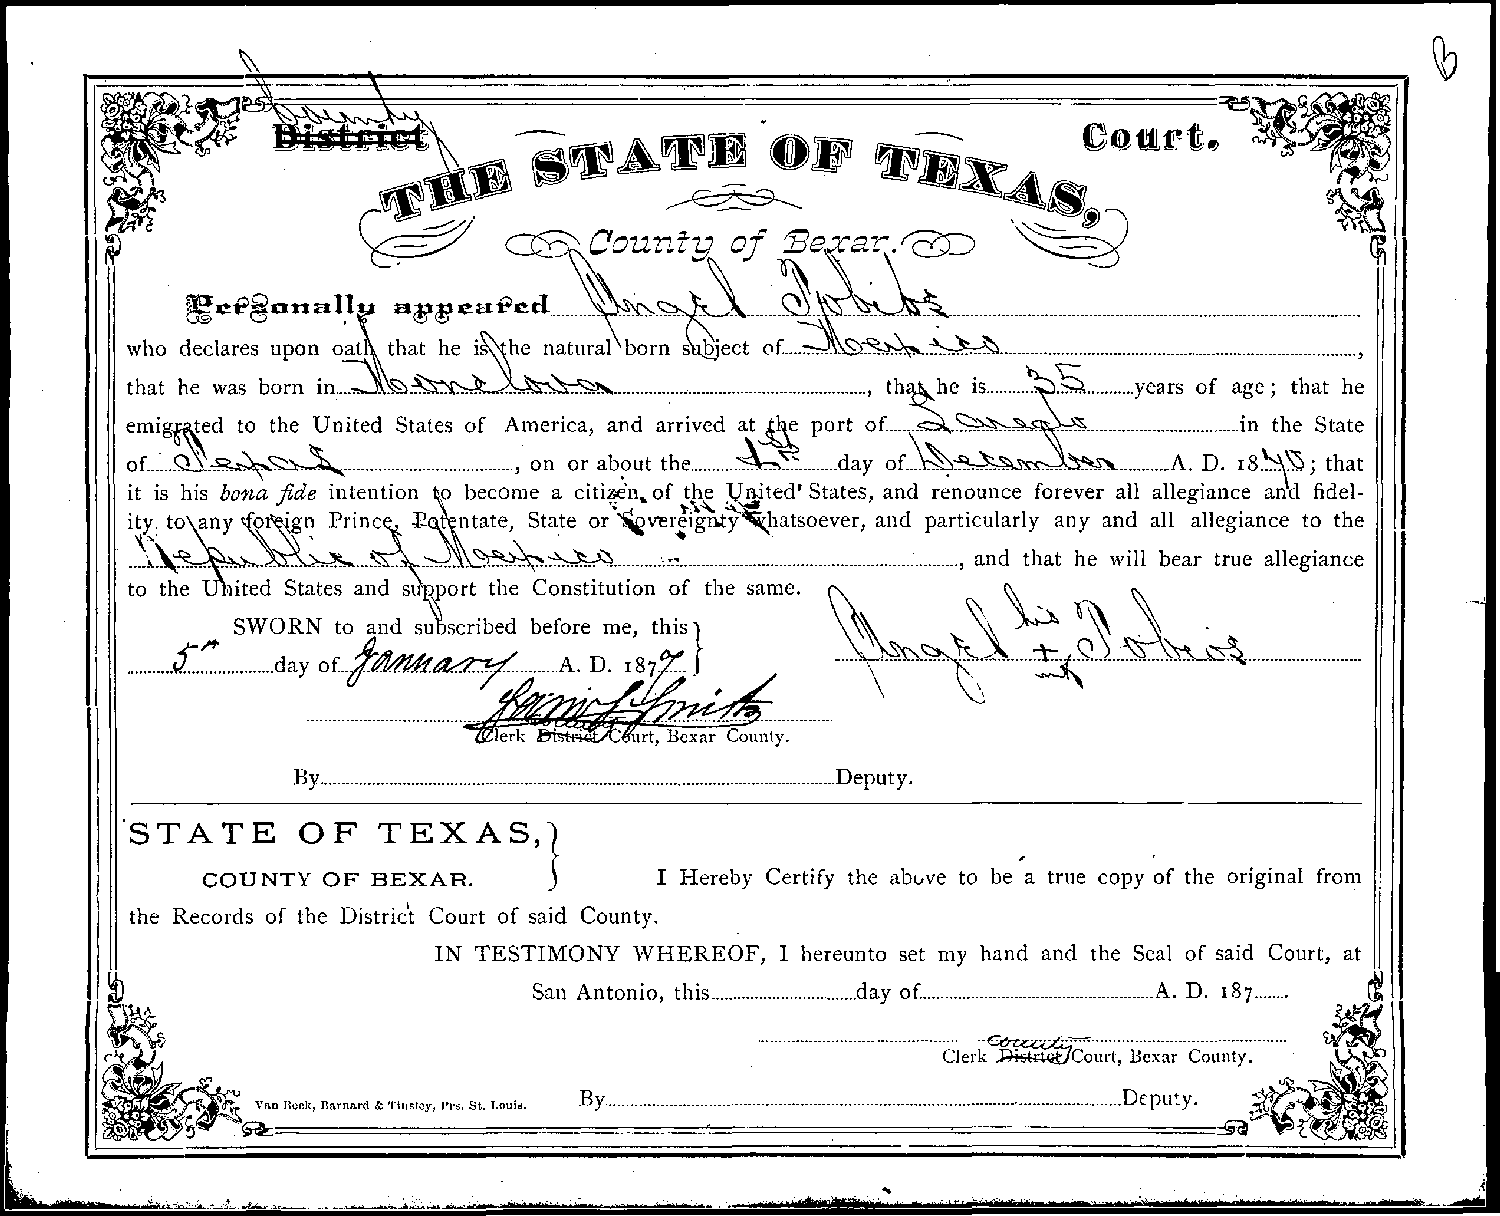 B
County
District Court.
THE STATE OF TEXAS,
County of Bexar.
Personally appeared Angel Tobios
who declares upon oath that he is the natural born subject of Mexico,
that he was born in Monclova, that he is 35 years of age; that he
emigrated to the United States of America, and arrived at the port of Laredo in the State
of Texas, on or about the 1st day of December A. D. 1840; that
it is his bona fide intention to become a citizen of the United States, and renounce forever all allegiance and fidel-
ity to any foreign Prince, Potentate, State or Sovereignty whatsoever, and particularly any and all allegiance to the
Republic of Mexico, and that he will bear true allegiance
to the United States and support the Constitution of the same.
SWORN to and subscribed before me, this
5th day of January A. D. 1877
Angel his + mk Tobios
Smith
County
Clerk District Court, Bexar County.
By Deputy.
STATE OF TEXAS,
COUNTY OF BEXAR.
I Hereby Certify the above to be a true copy of the original from
the Records of the District Court of said County.
IN TESTIMONY WHEREOF, I hereunto set my hand and the Seal of said Court, at
San Antonio, this day of A. D. 187
County
Clerk District Court, Bexar County.
Van Beek, Barnard & Tinsley, Prs. St. Louis.
By Deputy.